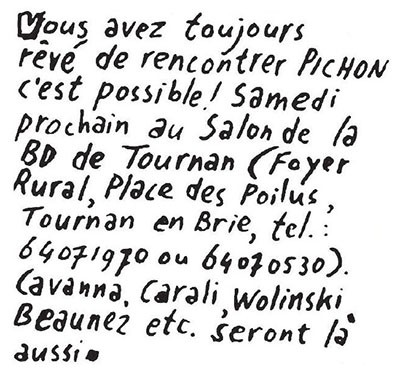 Vous avez toujours
rêvé de rencontrer PICHON
c'est possible! Samedi
prochain au Salon de la
BD de Tournan (Foyer
Rural, Place des Poilus,
Tournan en Brie, tel.:
64071970 ou 64070530).
Cavanna, Carali, Wolinski
Beaunez etc. seront là
aussi.